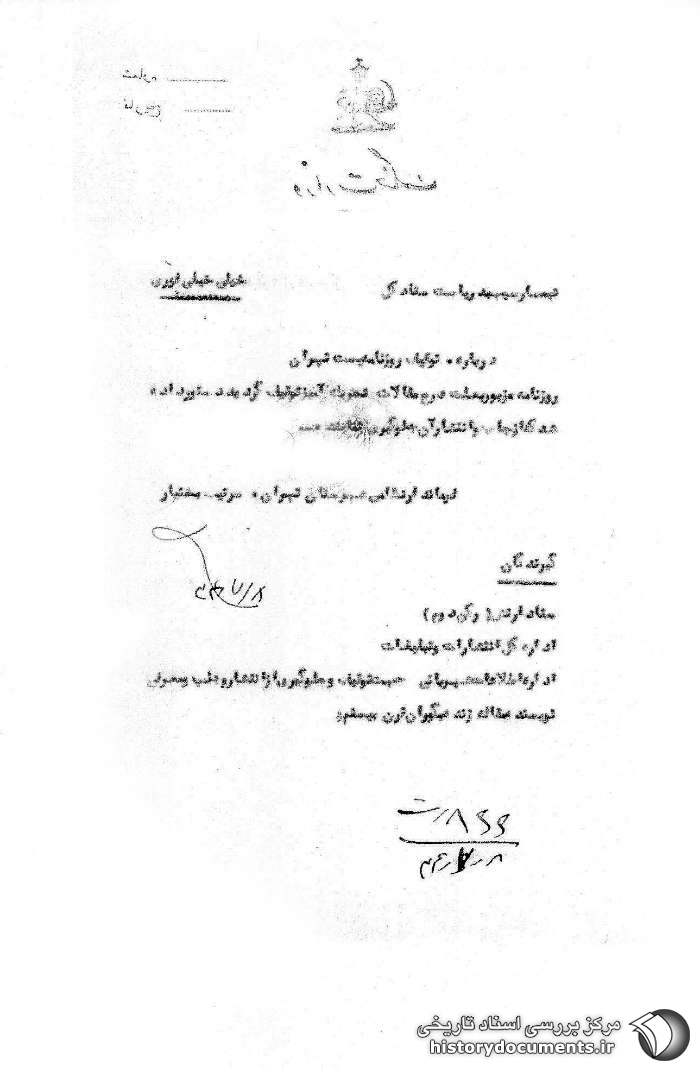 شماره
تاریخ
وزارت جنگ
تیمسار سپهبد ریاست ستاد کل
خیلی خیلی فوری
درباره - توقیف روزنامه پست تهران
روزنامه مزبور بعلت درج مقالات تحریک آمیز توقیف گردید دستور داده
شد که از چاپ و انتشار آن جلوگیری نمایند
فرماندار نظامی شهرستان تهران - سرتیپ بختیار
گیرندگان
ستاد ارتش (رکن دوم)
اداره کل انتشارات و تبلیغات
اداره اطلاعات شهربانی جهت توقیف و جلوگیری از انتشار و جلب و معرفی
نویسنده مقاله
مرکز بررسی اسناد تاریخی
historydocuments.ir